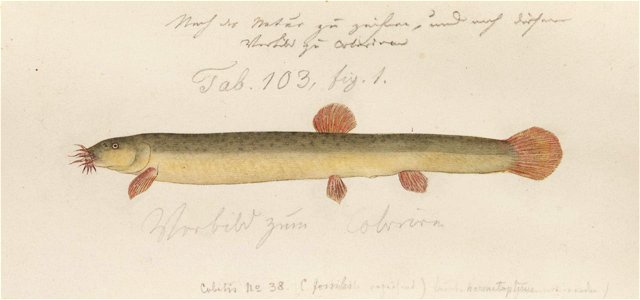 Nach der Natur zu zeichnen, und nach diesem
Vorbild zu Coloriren
Tab. 103, fig. 1.
Vorbild zum Coloriren
Cobitis No 38. (C fossilis